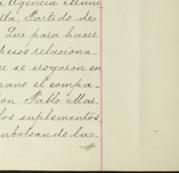 a Agencia Muni
lla, Partido de
Que para hacer
pesos relaciona-
e se erogaron en
mano el compa-
on Pablo Mar-
los suplementos
mbolsando las